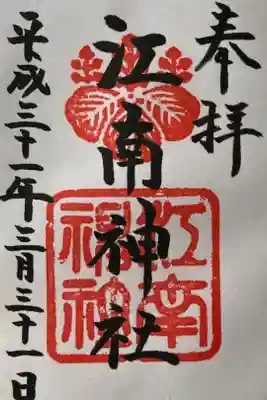 奉拝
江南神社
江南
神社
平成三十一年三月三十一日